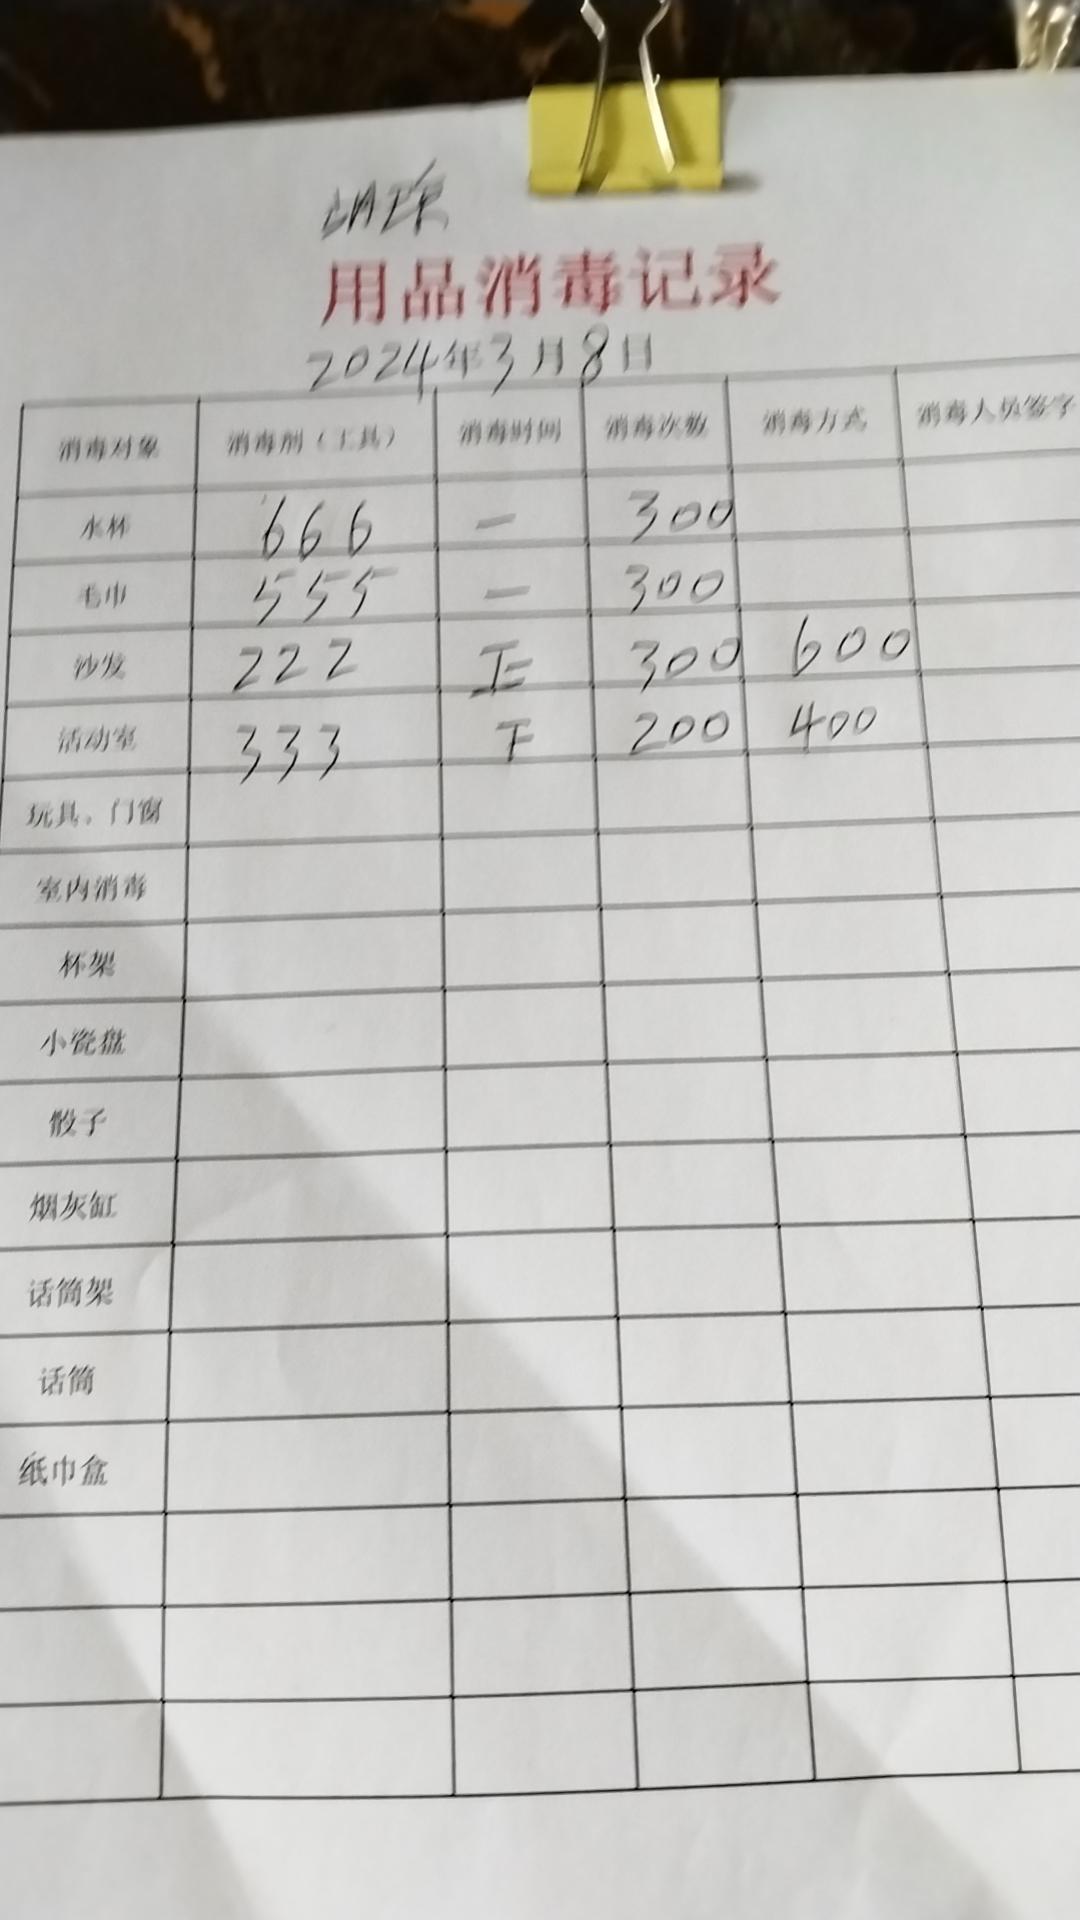 用品消毒记录
2024年3月8日
消毒对象 消毒剂（工具） 消毒时间 消毒次数 消毒方式 消毒人员签字
水杯 666 一 300
毛巾 555 一 300
沙发 222 300 600
活动室 333 下 200 400
玩具、门窗
室内消毒
杯架
小瓷盘
骰子
烟灰缸
话筒架
话筒
纸巾盒